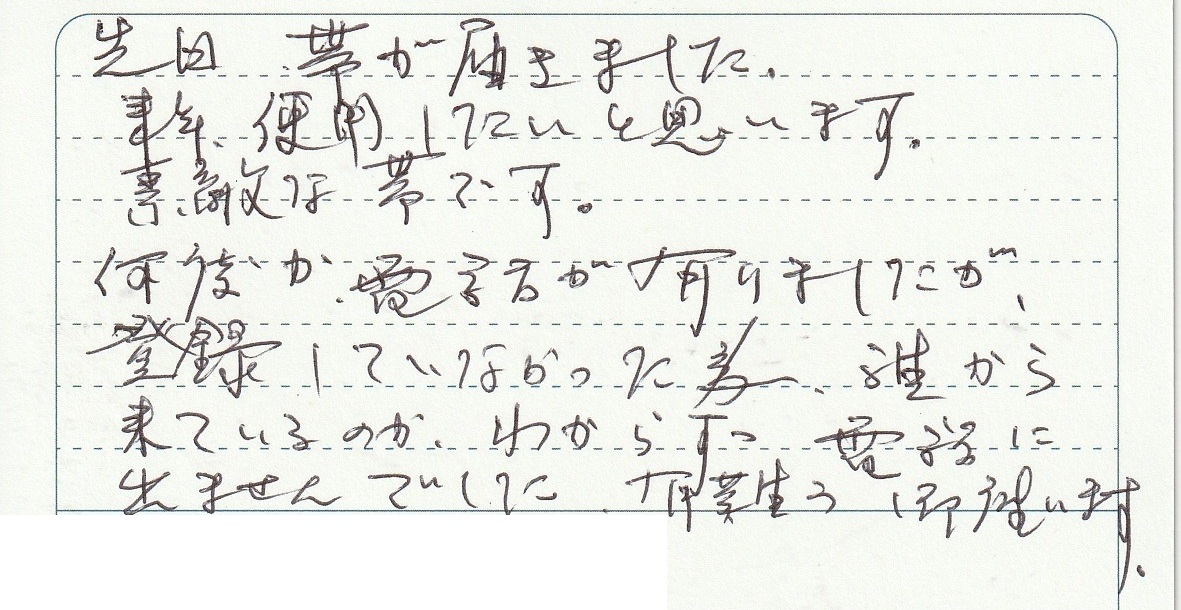 先日 帯が届きました.
来年、使用したいと思います。
素敵な帯です。
何度か、電話が有りましたが、
登録していなかった為、誰から
来ているのか、わからず 電話に
出ませんでした、有難う御座います.